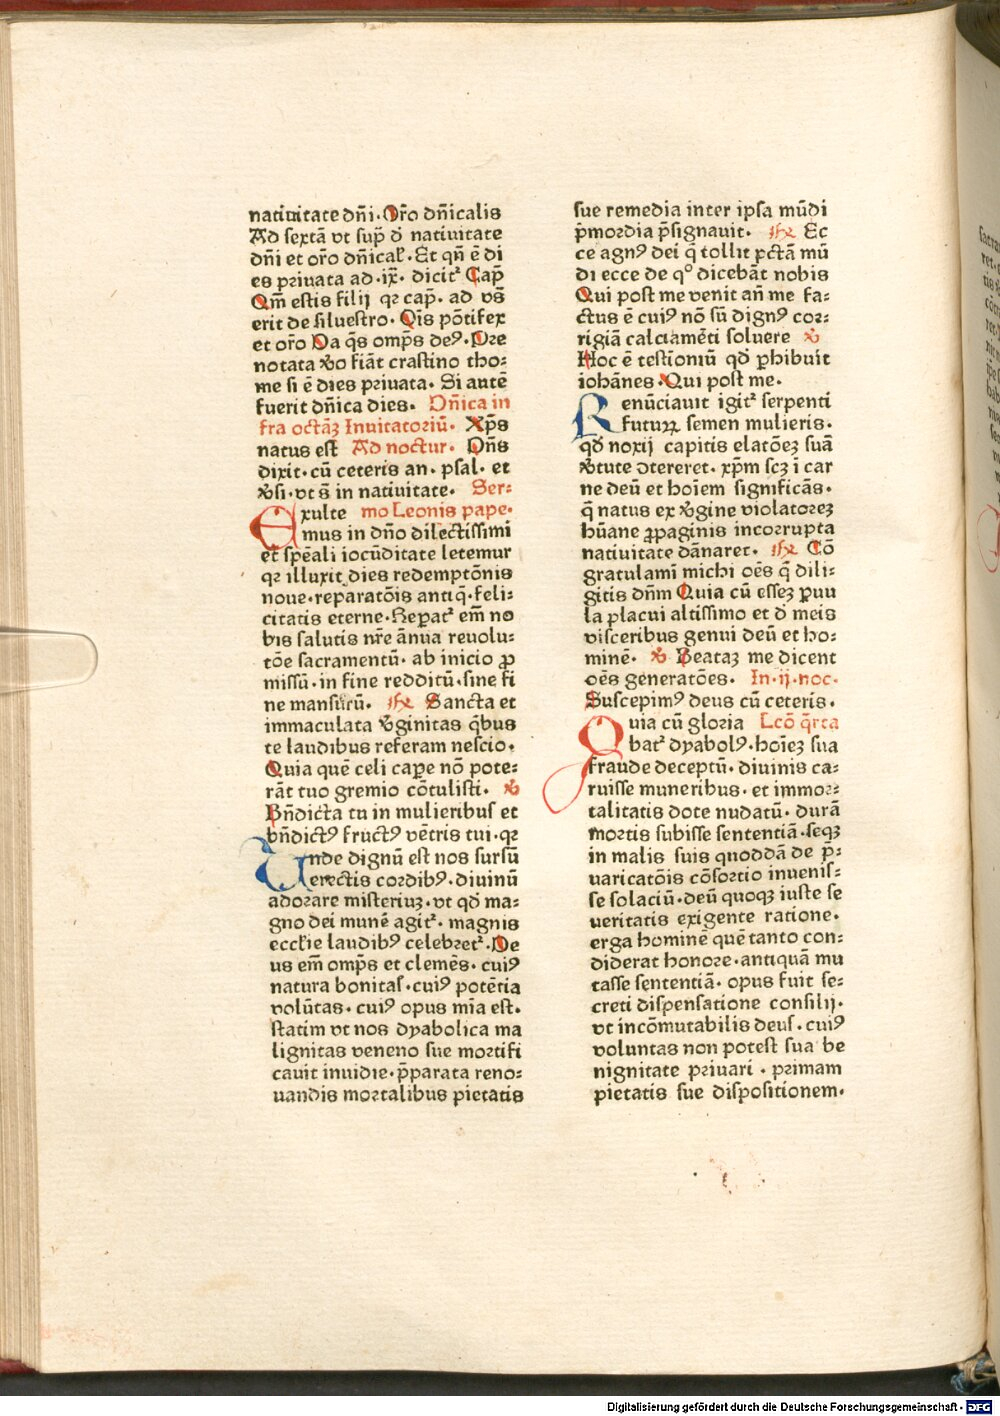 natiuitate dn̄i. Or̄o dn̄icalis
Ad sextā vt sup̄ d̄ natiuitate
dn̄i et or̄o dn̄icaƚ. Et qn̄ ē di
es priuata ad .ix̄. dicit᷑ Cap̄
Qm̄ estis filij qꝛ cap̄. ad vs̄
erit de siluestro. Qis pōtifex
et or̄o Da q̄s omp̄s deꝰ. Pre
notata v̊o fiāt crastino tho⸗
me si ē dies priuata. Si autē
fuerit dn̄ica dies. Dn̄ica in
fra octāꝫ Inuitatoriū. Xp̄s
natus est Ad noctur. Dn̄s
dixit. cū ceteris an. psal. et
v̊si. vt s̄ in natiuitate. Ser⸗
Exulte mo Leonis pape.
mus in dn̄o dilectissimi
et sp̄eali iocūditate letemur
qꝛ illuxit dies redemptōnis
noue. reparatōis antiq̄. feli⸗
citatis eterne. Reꝑat᷑ em̄ no
bis salutis nr̄e ānua reuolu⸗
tōe sacramentū. ab inicio ꝓ
missū. in fine redditū. sine fi
ne mansurū. ℟ Sancta et
immaculata v̊ginitas q̄bus
te laudibus referam nescio.
Quia quē celi caꝑe nō pote⸗
rāt tuo gremio cōtulisti. ℣
Bn̄dicta tu in mulieribus et
bn̄dictꝰ fructꝰ vētris tui. qꝛ
Unde dignū est nos sursū
erectis cordibꝰ. diuinū
adorare misteriuꝫ. vt qd̄ ma⸗
gno dei munē agit᷑. magnis
eccƚie laudibꝰ celebret᷑. De
us em̄ omp̄s et clemēs. cuiꝰ
natura bonitas. cuiꝰ potētia
volūtas. cuiꝰ opus mīa est.
statim vt nos dyabolica ma
lignitas veneno sue mortifi
cauit inuidie. p̄parata reno⸗
uandis mortalibus pietatis
sue remedia inter ipsa mūdi
p̄mordia p̄signauit. ℟ Ec
ce agnꝰ dei q̄ tollit pctām mū
di ecce de q° dicebāt nobis
Qui post me venit an̄ me fa⸗
ctus ē cuiꝰ nō sū dignꝰ cor⸗
rigiā calciamēti soluere ℣
Hoc ē testioniū qd̄ ꝑhibuit
iohānes. Qui post me.
Renūciauit igit᷑ serpenti
futuꝝ semen mulieris.
qd̄ noxij capitis elatōeꝫ suā
v̊tute ꝯtereret. xp̄m scꝫ ī car
ne deū et hoīem significās.
q̄ natus ex v̊gine violatoreꝫ
hūane ꝓpaginis incorrupta
natiuitate dānaret. ℟ Cō
gratulami michi oēs q̄ dili⸗
gitis dn̄m Quia cū esseꝫ ꝑuu
la placui altissimo et d̄ meis
visceribus genui deū et ho⸗
minē. ℣ Beataꝫ me dicent
oēs generatōes. In .ij. noc.
Suscepimꝰ deus cū ceteris.
Quia cū gloria Lcō q̄rta
bat᷑ dyabolꝰ. hoīeꝫ sua
fraude deceptū. diuinis ca⸗
ruisse muneribus. et immor⸗
talitatis dote nudatū. durā
mortis subisse sententiā. seqꝫ
in malis suis quoddā de p̄⸗
uaricatōis cōsortio inuenis⸗
se solaciū. deū quoqꝫ iuste se
ueritatis exigente ratione.
erga hominē quē tanto con⸗
diderat honore. antiquā mu
tasse sententiā. opus fuit se⸗
creti dispensatione consilij.
vt incōmutabilis deus. cuiꝰ
voluntas non potest sua be
nignitate priuari. primam
pietatis sue dispositionem.
Digitalisierung gefördert durch die Deutsche Forschungsgemeinschaft - DFG